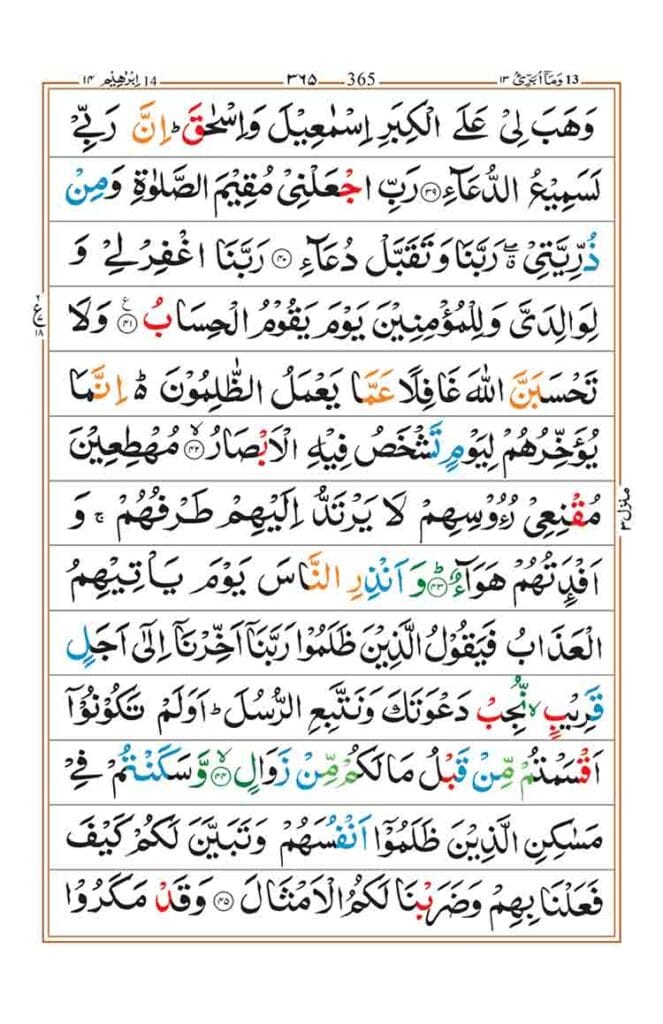 وَمَآ اُبَرِّئُ ١٣ 13 365 ٣٦٥ اِبْرٰهِيْم ١٤ 14
وَهَبَ لِىْ عَلَى الْكِبَرِ اِسْمٰعِيْلَ وَاِسْحٰقَ ؕ اِنَّ رَبِّىْ
لَسَمِيْعُ الدُّعَآءِ ﴿۳۹﴾ رَبِّ اجْعَلْنِىْ مُقِيْمَ الصَّلٰوةِ وَمِنْ
ذُرِّيَّتِىْ ۖ رَبَّنَا وَتَقَبَّلْ دُعَآءِ ﴿۴۰﴾ رَبَّنَا اغْفِرْ لِىْ وَ
لِوَالِدَىَّ وَلِلْمُؤْمِنِيْنَ يَوْمَ يَقُوْمُ الْحِسَابُ ﴿۴۱﴾ وَلَا
تَحْسَبَنَّ اللّٰهَ غَافِلًا عَمَّا يَعْمَلُ الظّٰلِمُوْنَ ؕ اِنَّمَا
يُؤَخِّرُهُمْ لِيَوْمٍ تَشْخَصُ فِيْهِ الْاَبْصَارُ ﴿۴۲﴾ مُهْطِعِيْنَ
مُقْنِعِىْ رُءُوْسِهِمْ لَا يَرْتَدُّ اِلَيْهِمْ طَرْفُهُمْ ۚ وَ
اَفْـِٕدَتُهُمْ هَوَآءٌ ؕ ﴿۴۳﴾ وَاَنْذِرِ النَّاسَ يَوْمَ يَاْتِيْهِمُ
الْعَذَابُ فَيَقُوْلُ الَّذِيْنَ ظَلَمُوْا رَبَّنَآ اَخِّرْنَآ اِلٰٓى اَجَلٍ
قَرِيْبٍ ۙ نُّجِبْ دَعْوَتَكَ وَنَتَّبِعِ الرُّسُلَ ؕ اَوَلَمْ تَكُوْنُوْٓا
اَقْسَمْتُمْ مِّنْ قَبْلُ مَا لَكُمْ مِّنْ زَوَالٍ ۙ ﴿۴۴﴾ وَّسَكَنْتُمْ فِىْ
مَسٰكِنِ الَّذِيْنَ ظَلَمُوْٓا اَنْفُسَهُمْ وَتَبَيَّنَ لَكُمْ كَيْفَ
فَعَلْنَا بِهِمْ وَضَرَبْنَا لَكُمُ الْاَمْثَالَ ﴿۴۵﴾ وَقَدْ مَكَرُوْا
ع ١٨
منزل ٣